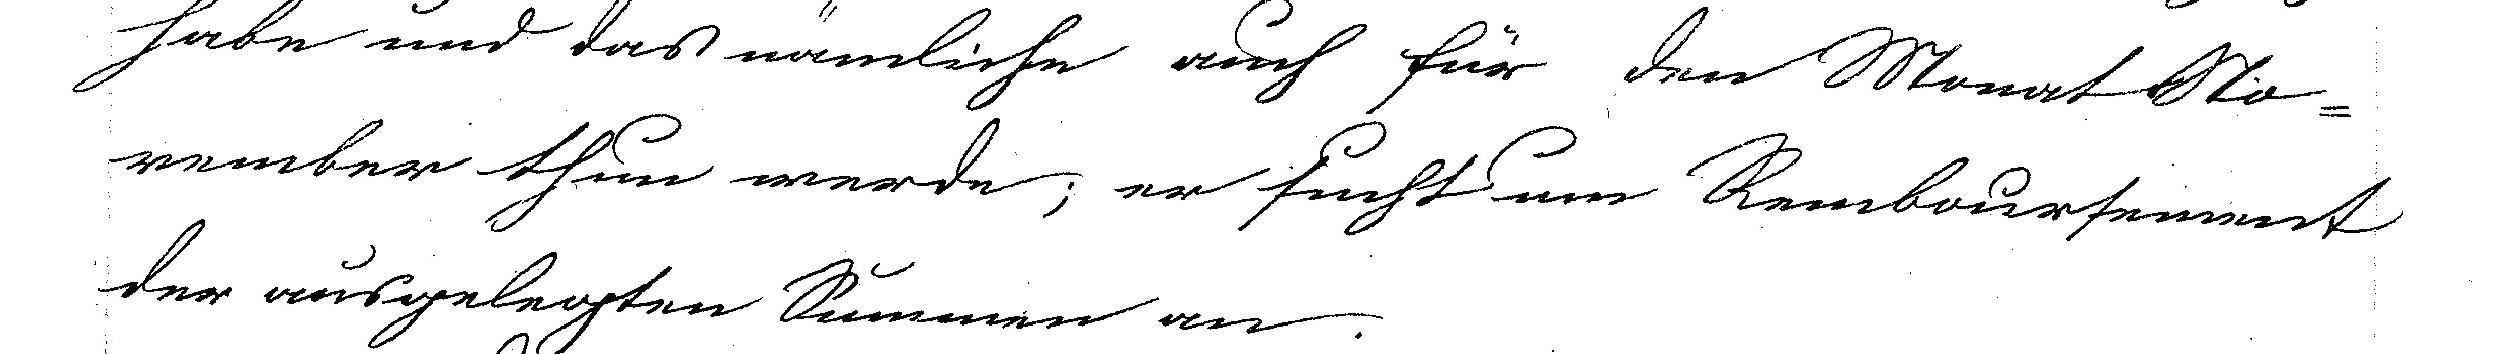 habe und das nämliche auch für den Monat No=
vember thun werde; er sucht um Remboursement
der ausgelegten Summen an.